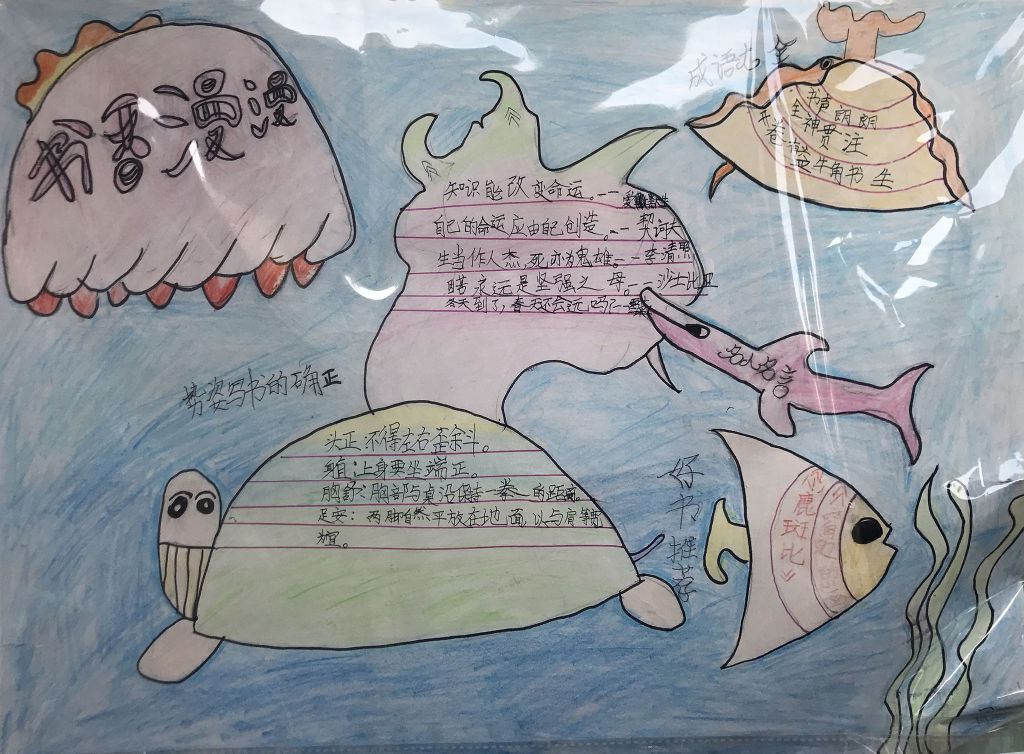 书香漫漫
成语志
书声朗朗
全神贯注
牛角书生
知识能改变命运。--
自己的命运应由自己创造。--契诃夫
生当作人杰,死亦为鬼雄--李清照
是坚强之母。--沙士比亚
冬天到了,春天还会远吗?--
名人名言
势姿写书的确正
头正:不得左右歪斜。
身直:上身要坐端正。
胸舒:胸部与桌沿保持一拳的距离
足安:两脚自然平放在地面,以与肩等宽
为宜。
好书推荐
小鹿斑比